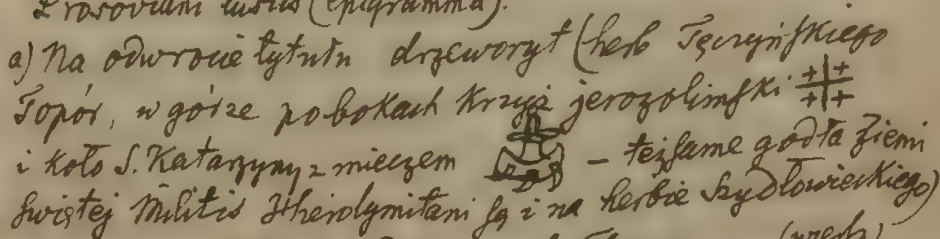 Prosoviani lusus (epigramma).
a) Na odwrocie tytułu drzeworyt (herb Tęczyńſkiego
Topór, w górze po bokach Krzyż jerozolimſki
i koło S. Katarzyny z mieczem – teżſame godła Ziemi
Swiętej Militis Hierolymitani ſą i na herbie Szydłowieckiego)